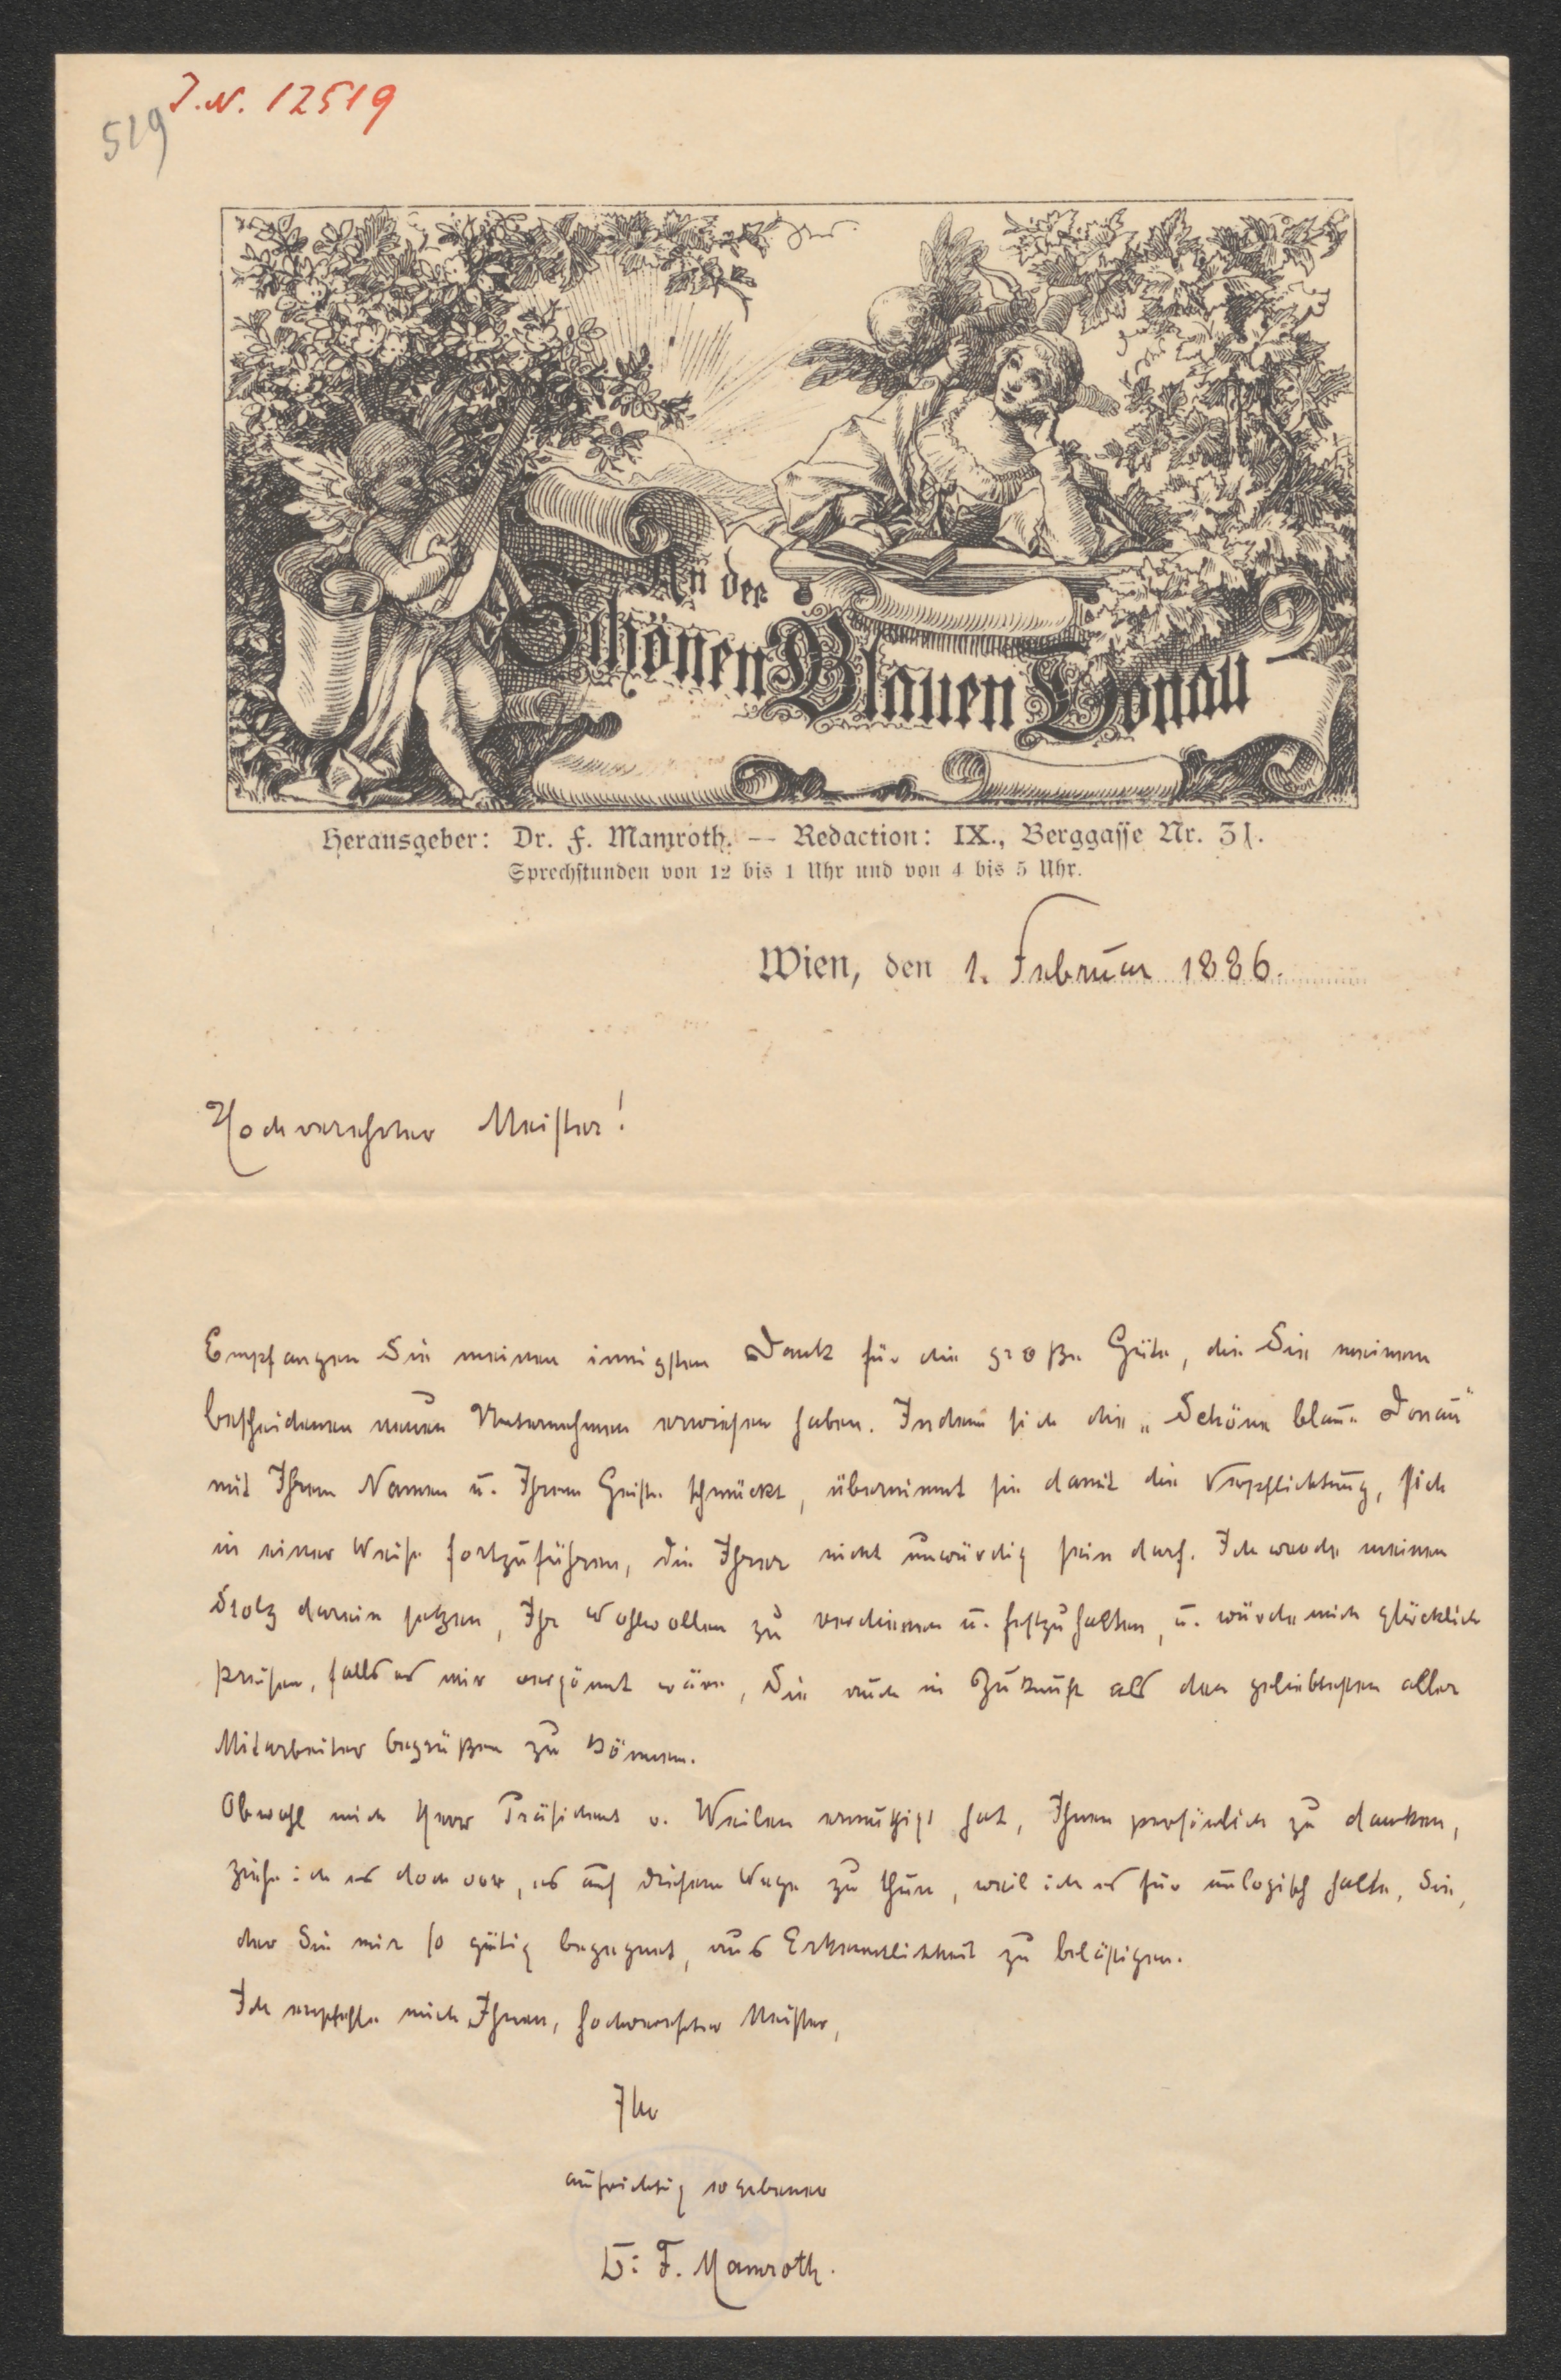 J.N. 12519
519
An der
Schönen Blauen Donau
Herausgeber: Dr. F. Mamroth. — Redaction: IX., Berggasse Nr. 31.
Sprechstunden von 12 bis 1 Uhr und von 4 bis 5 Uhr.
Wien, den 1. Februar 1886.
Hochverehrter Meister!
Empfangen Sie meinen innigsten Dank für die große Güte, die Sie meinem
bescheidenen neuen Unternehmen erwiesen haben. Indem sich die „Schöne blaue Donau“
mit Ihrem Namen u. Ihrem Geiste schmückt, übernimmt sie damit die Verpflichtung, sich
in einer Weise fortzuführen, die Ihrer nicht unwürdig sein darf. Ich werde meinen
Stolz darein setzen, Ihr Wohlwollen zu verdienen u. festzuhalten, u. würde mich glücklich
preisen, falls es mir vergönnt wäre, Sie auch in Zukunft als den geliebtesten aller
Mitarbeiter begrüßen zu können.
Obwohl mich Herr Präsident v. Weilen ermuthigt hat, Ihnen persönlich zu danken,
ziehe ich es doch vor, es auf diesem Wege zu thun, weil ich es für unlogisch halte, Sie,
der Sie mir so gütig begegnet, aus Erkenntlichkeit zu belästigen.
Ich empfehle mich Ihnen, hochverehrter Meister,
Ihr
aufrichtig ergebener
Dr. F. Mamroth.